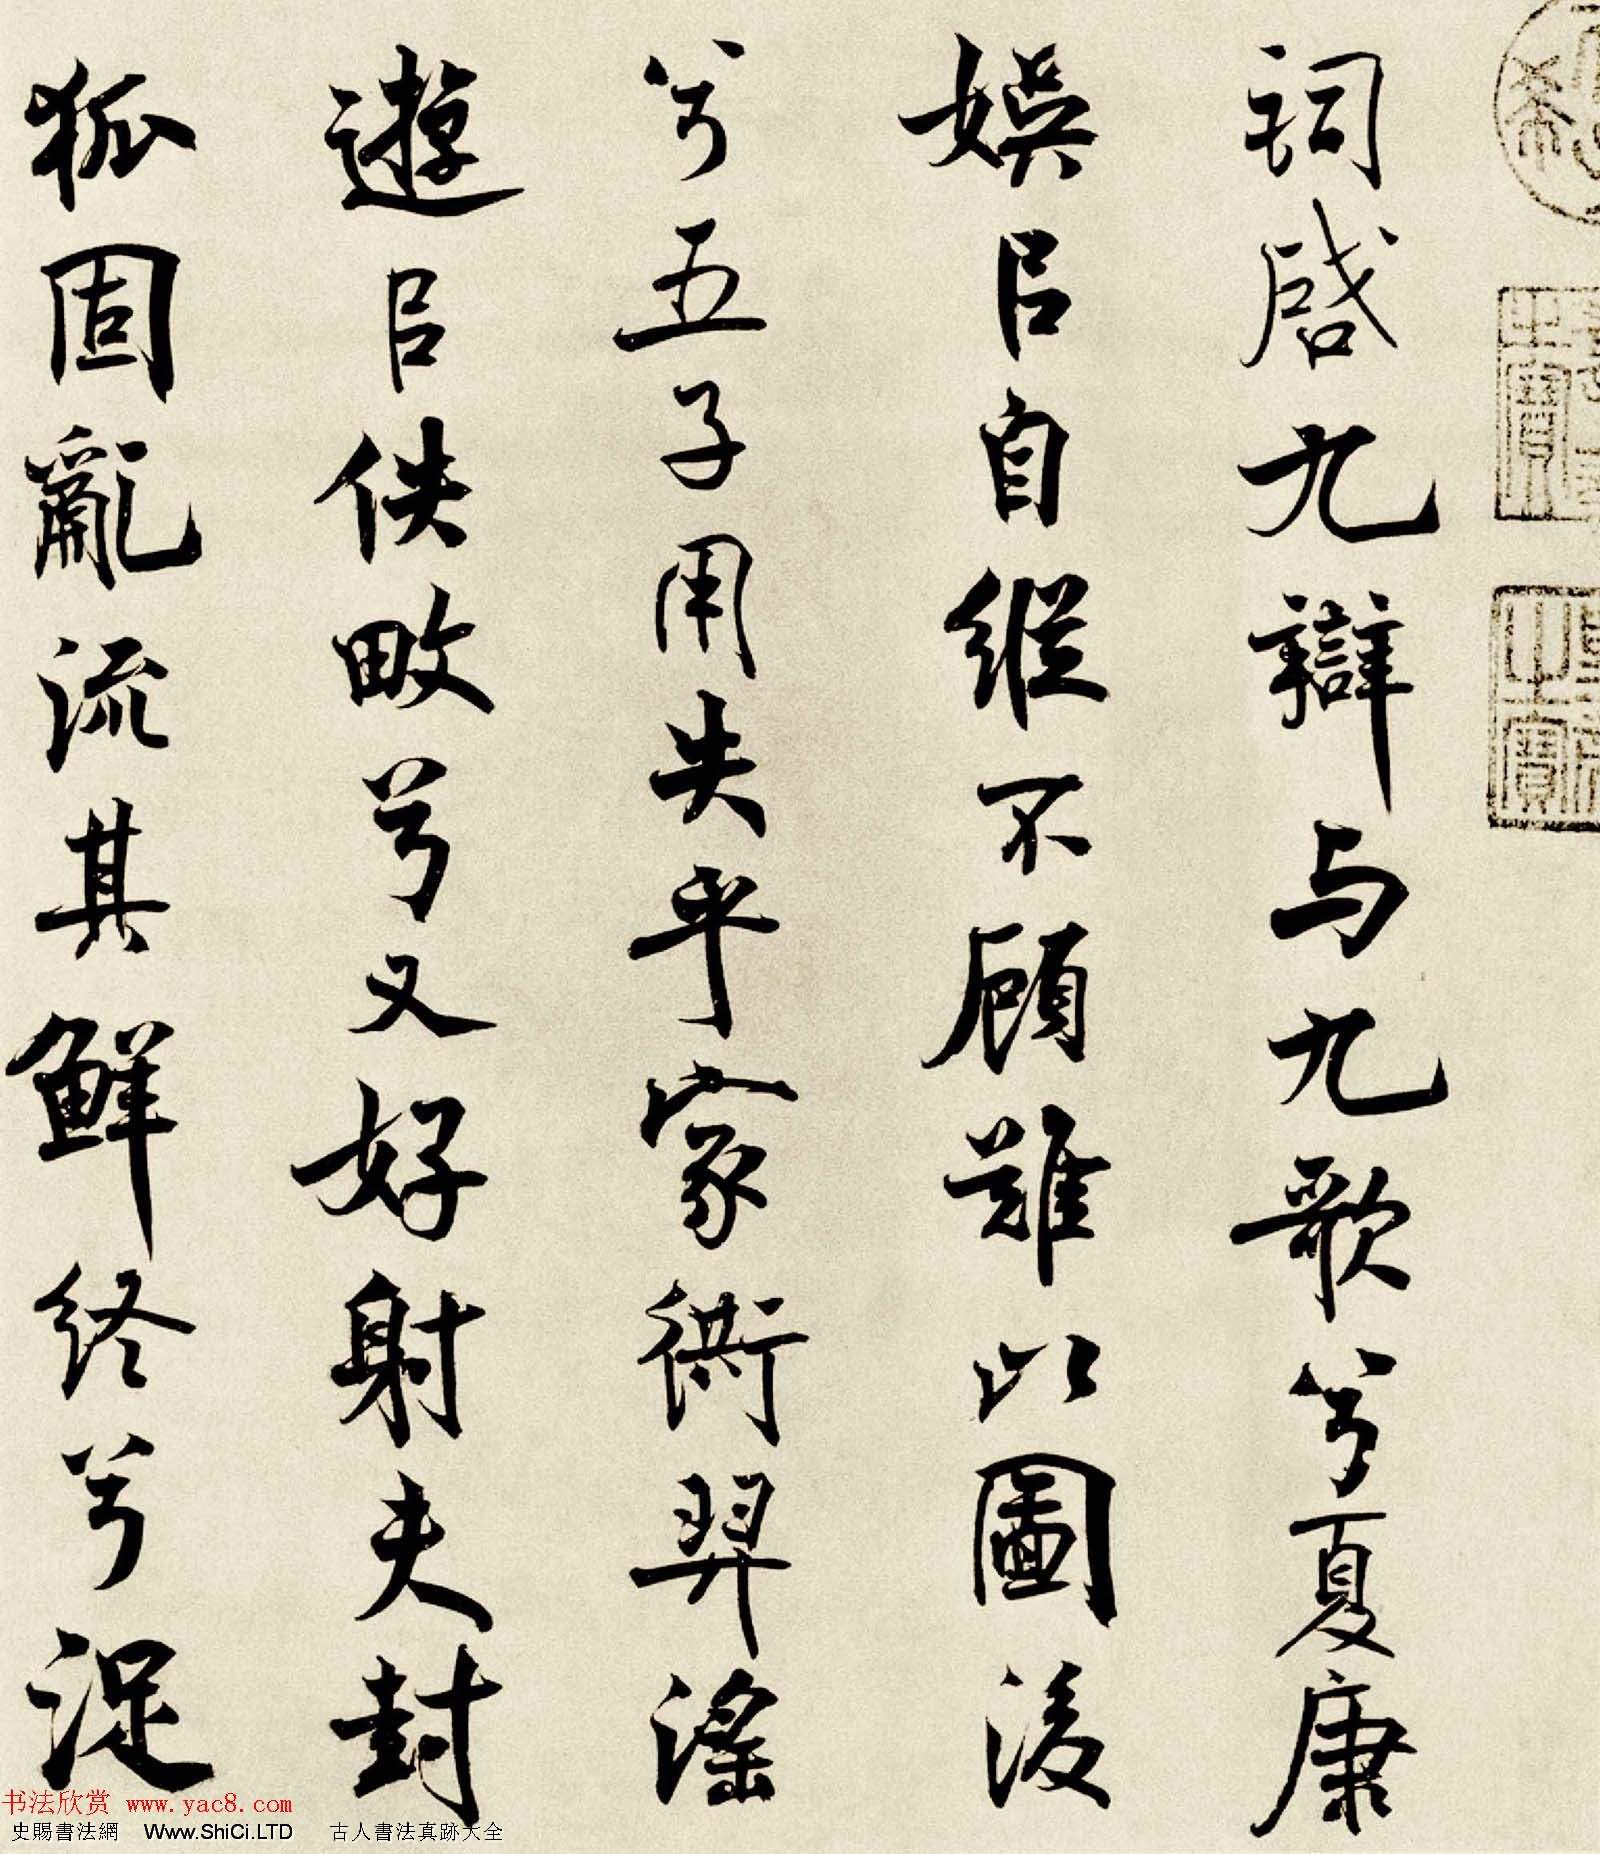 词啓九辯与九歌兮夏康
娱㠯自縱不顧難以圖後
兮五子用失乎家衖羿滛
遊㠯佚畋兮又好射夫封
狐固亂流其鮮終兮浞
书法欣赏 www.yac8.com
史賜書法網 Www.ShiCi.LTD 古人書法真跡大全